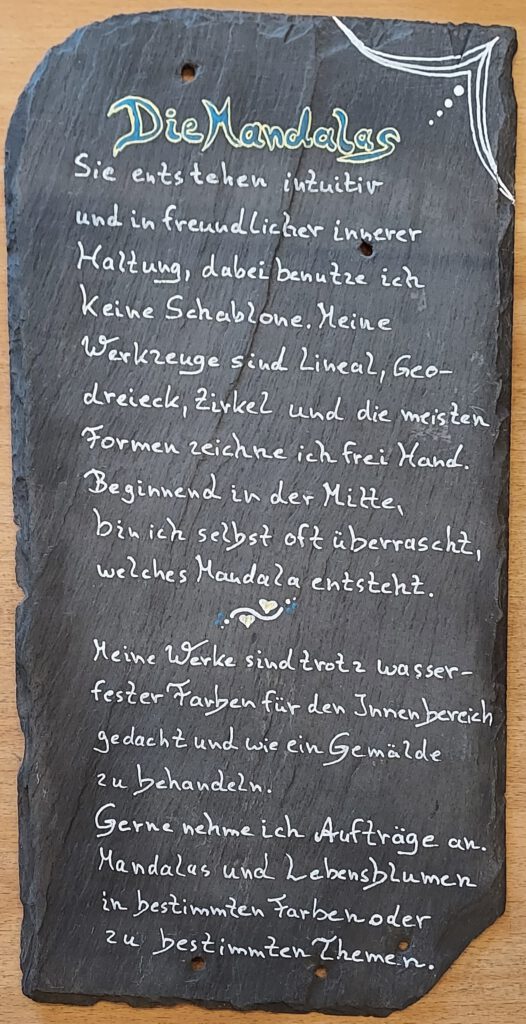 Die Mandalas
Sie entstehen intuitiv
und in freundlicher innerer
Haltung, dabei benutze ich
keine Schablone. Meine
Werkzeuge sind Lineal, Geo-
dreieck, Zirkel und die meisten
Formen zeichne ich frei Hand.
Beginnend in der Mitte,
bin ich selbst oft überrascht,
welches Mandala entsteht.
Meine Werke sind trotz wasser-
fester Farben für den Innenbereich
gedacht und wie ein Gemälde
zu behandeln.
Gerne nehme ich Aufträge an.
Mandalas und Lebensblumen
in bestimmten Farben oder
zu bestimmten Themen.